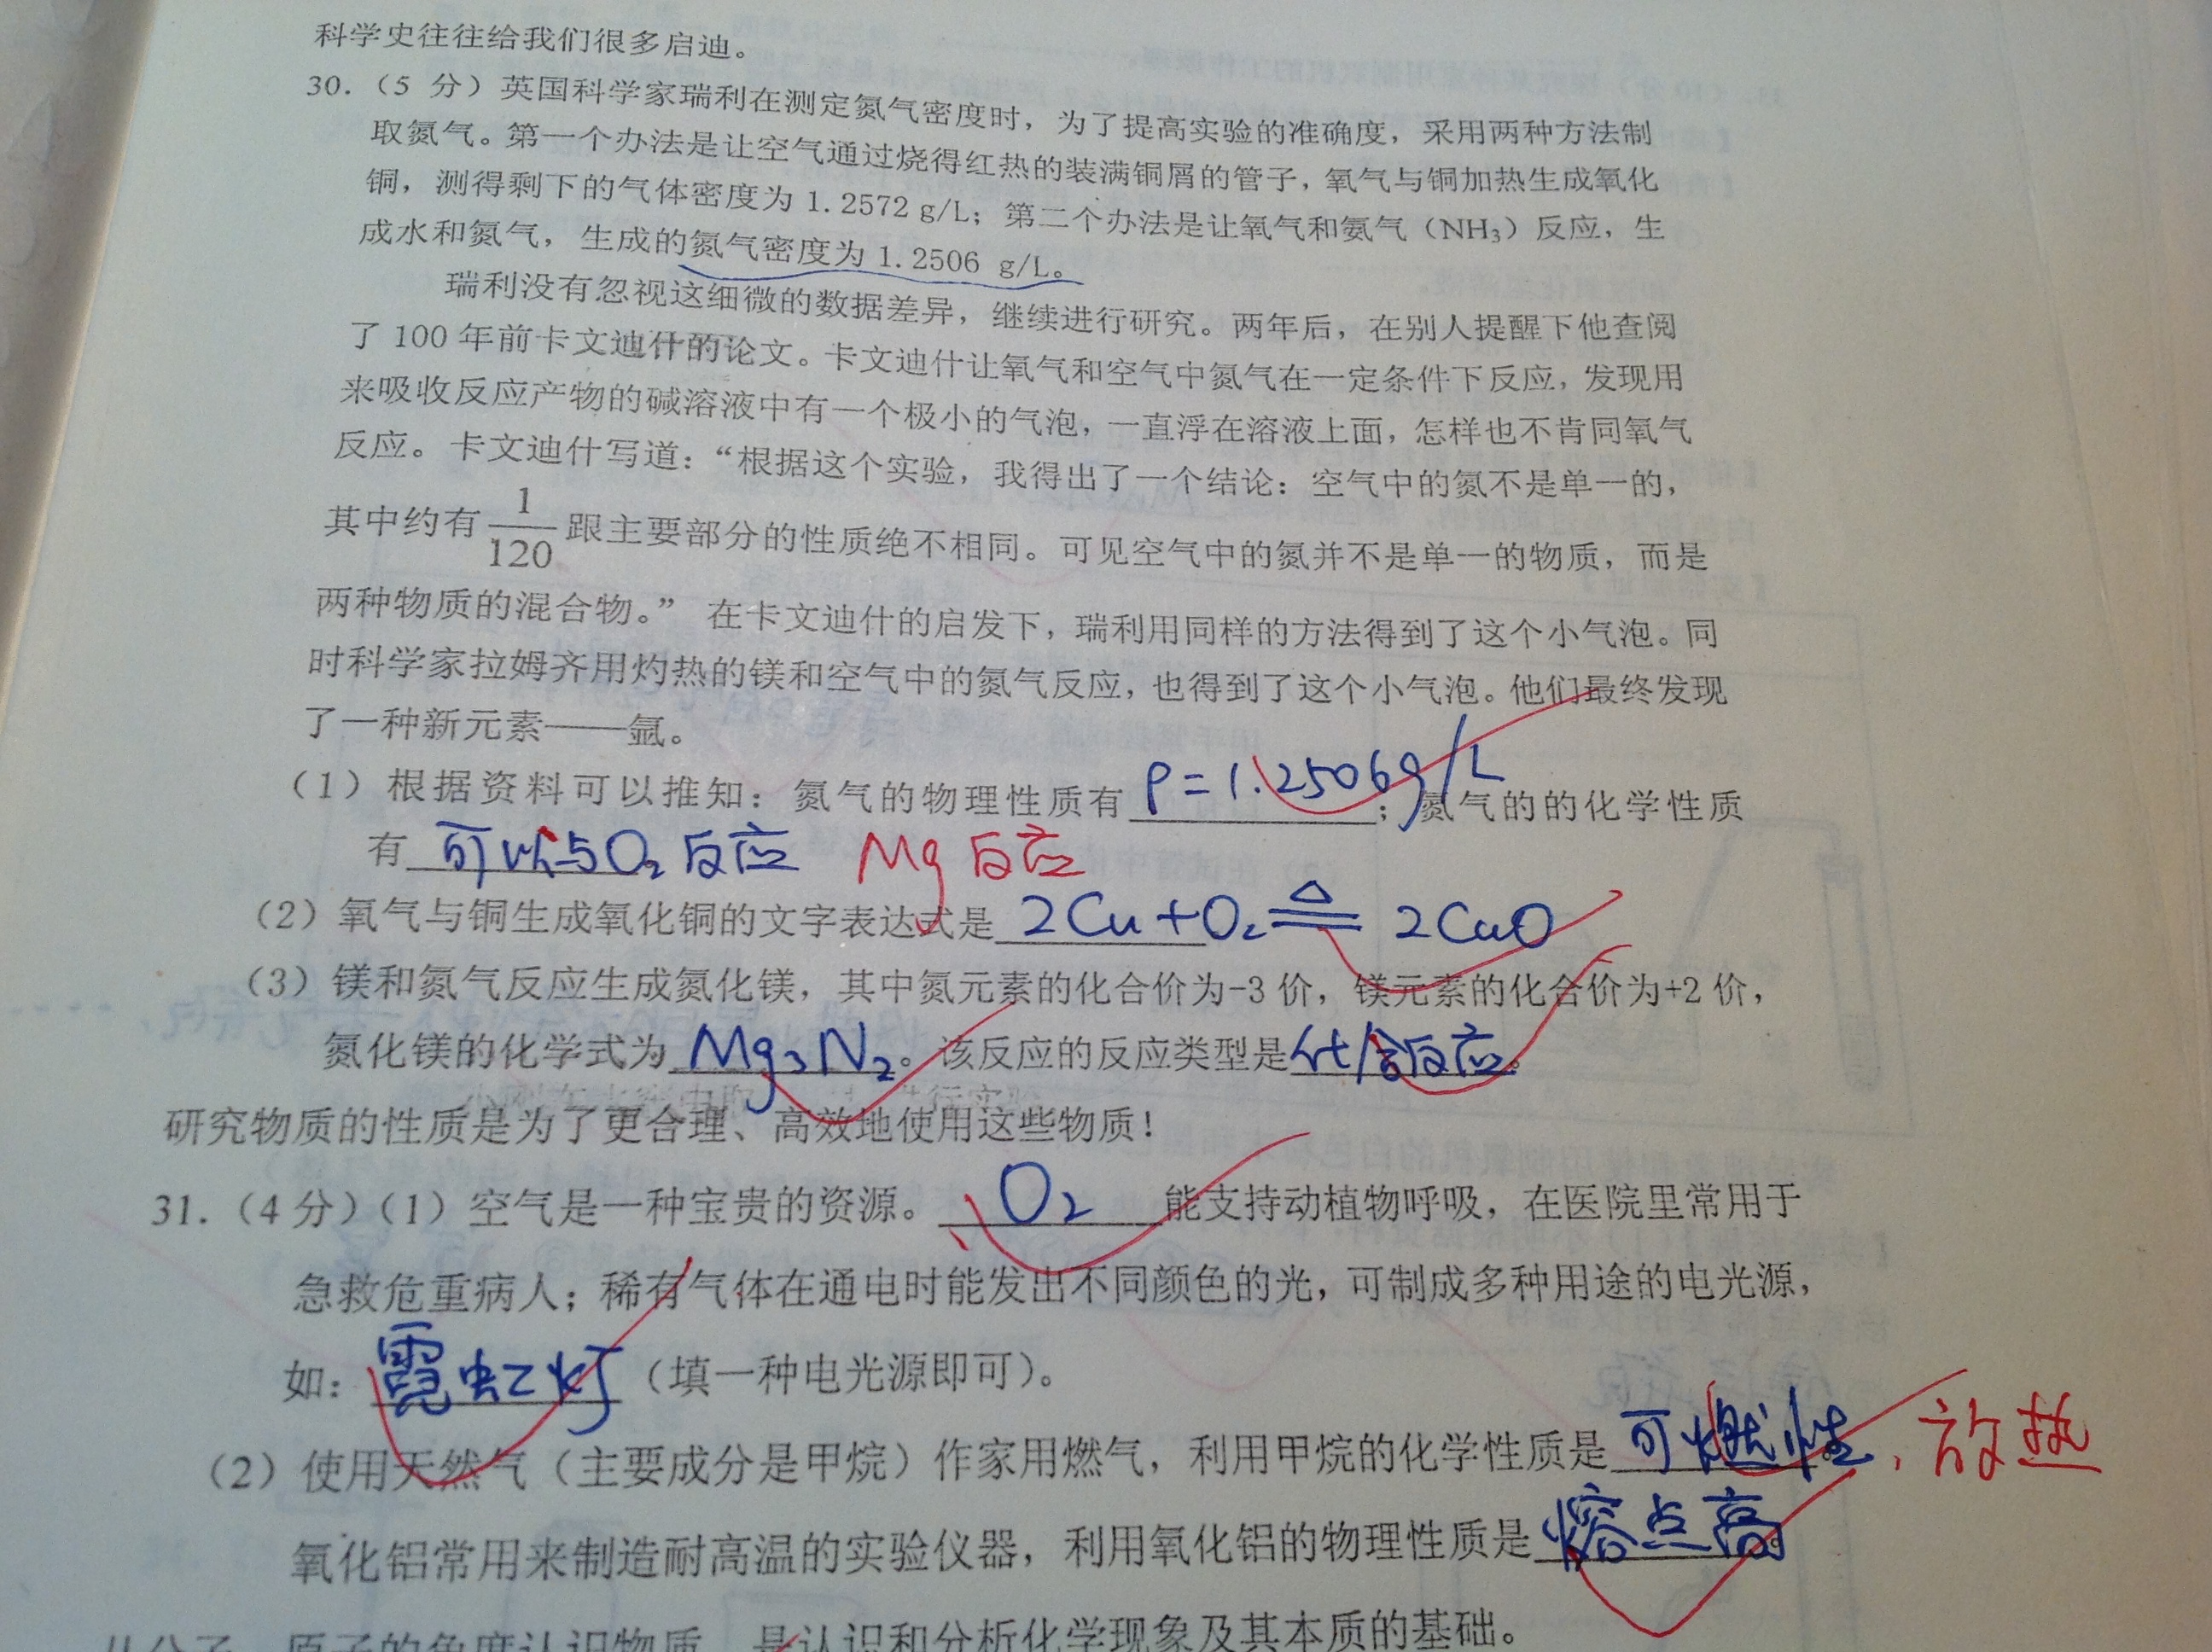 科学史往往给我们很多启迪。
30.（5 分）英国科学家瑞利在测定氮气密度时，为了提高实验的准确度，采用两种方法制
取氮气。第一个办法是让空气通过烧得红热的装满铜屑的管子，氧气与铜加热生成氧化
铜，测得剩下的气体密度为 1.2572 g/L；第二个办法是让氧气和氨气（NH₃）反应，生
成水和氮气，生成的氮气密度为 1.2506 g/L。
瑞利没有忽视这细微的数据差异，继续进行研究。两年后，在别人提醒下他查阅
了 100 年前卡文迪什的论文。卡文迪什让氧气和空气中氮气在一定条件下反应，发现用
来吸收反应产物的碱溶液中有一个极小的气泡，一直浮在溶液上面，怎样也不肯同氧气
反应。卡文迪什写道：“根据这个实验，我得出了一个结论：空气中的氮不是单一的，
其中约有 1/120 跟主要部分的性质绝不相同。可见空气中的氮并不是单一的物质，而是
两种物质的混合物。” 在卡文迪什的启发下，瑞利用同样的方法得到了这个小气泡。同
时科学家拉姆齐用灼热的镁和空气中的氮气反应，也得到了这个小气泡。他们最终发现
了一种新元素——氩。
（1）根据资料可以推知：氮气的物理性质有 ρ=1.2506g/L ；氮气的的化学性质
有 可以与O₂反应 Mg反应
（2）氧气与铜生成氧化铜的文字表达式是 2Cu+O₂ ≜ 2CuO
（3）镁和氮气反应生成氮化镁，其中氮元素的化合价为-3 价，镁元素的化合价为+2 价，
氮化镁的化学式为 Mg₃N₂ 。该反应的反应类型是 化合反应 。
研究物质的性质是为了更合理、高效地使用这些物质！
31.（4 分）（1）空气是一种宝贵的资源。 O₂ 能支持动植物呼吸，在医院里常用于
急救危重病人；稀有气体在通电时能发出不同颜色的光，可制成多种用途的电光源，
如： 霓虹灯 （填一种电光源即可）。
（2）使用天然气（主要成分是甲烷）作家用燃气，利用甲烷的化学性质是 可燃性 、放热
氧化铝常用来制造耐高温的实验仪器，利用氧化铝的物理性质是 熔点高 。
从分子、原子的角度认识物质，是认识和分析化学现象及其本质的基础。